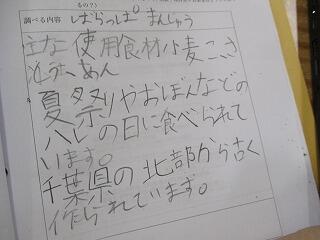 調べる内容 しばらっぱ まんじゅう
主な使用食材 小麦こ、さ
とう、あん
夏祭りやおぼんなどの
ハレの日に食べられて
います。
千葉県の北部から古く
作られています。